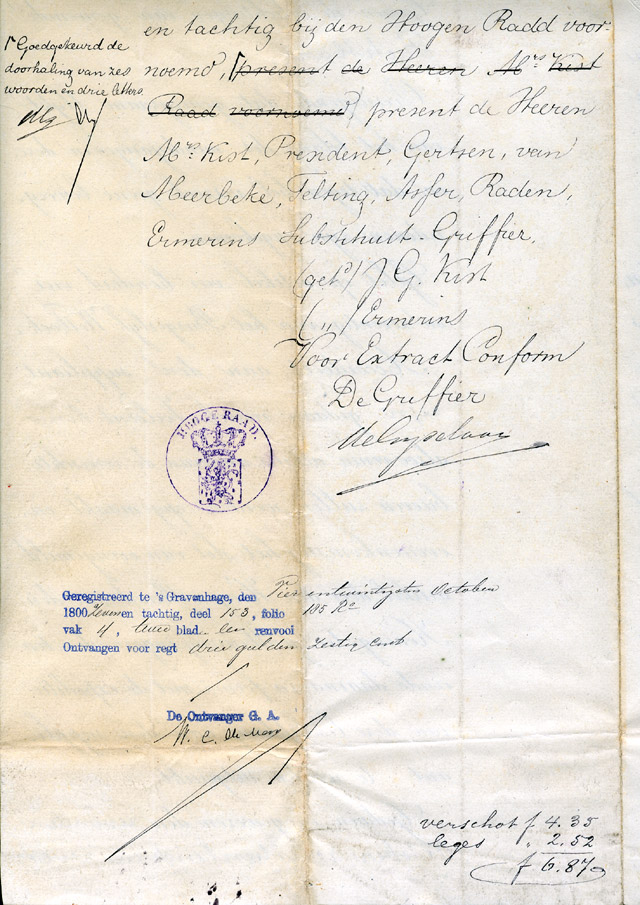 Goedgekeurd de
doorhaling van zes
woorden en drie letters.
en tachtig bij den Hoogen Raad voor-
noemd, present de Heeren Mrs Kist
Raad voornoemd, present de Heeren
Mrs. Kist, President, Gertsen, van
Meerbeke, Telting, Asser, Raden,
Ermerins Substituut-Griffier.
(getd) J. G. Kist
( „ ) Ermerins
Voor Extract Conform
De Griffier
HOOGE RAAD.
Geregistreerd te 's Gravenhage, den Vier entwintigsten October
1800 Zeven en tachtig, deel 153, folio 185 Ro
vak 4, twee blad een renvooi
Ontvangen voor regt drie gulden zestig cent
De Ontvanger G. A.
verschot f 4.35
leges „ 2.52
f 6.87